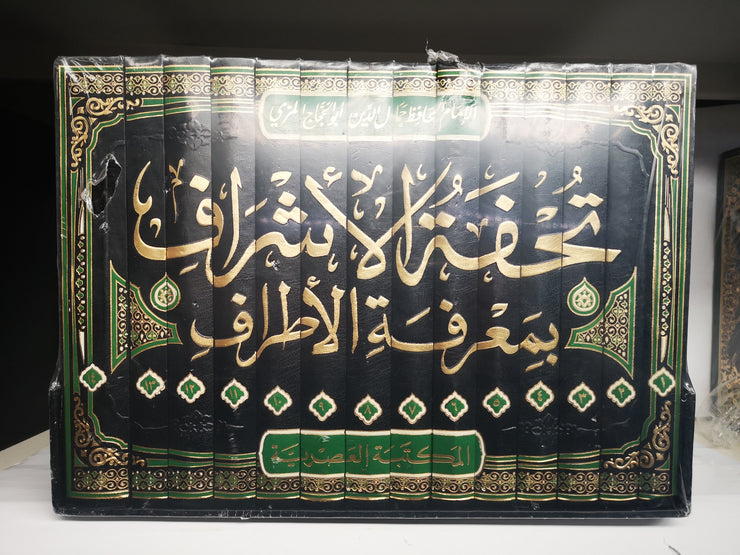 الإمام الحافظ جمال الدين أبو الحجاج المزي
تُحْفَةُ الأَشْرَافِ
بِمَعْرِفَةِ الأَطْرَافِ
١ ٢ ٣ ٤ ٥ ٦ ٧ ٨ ٩ ١٠ ١١ ١٢ ١٣
المكتبة العصرية